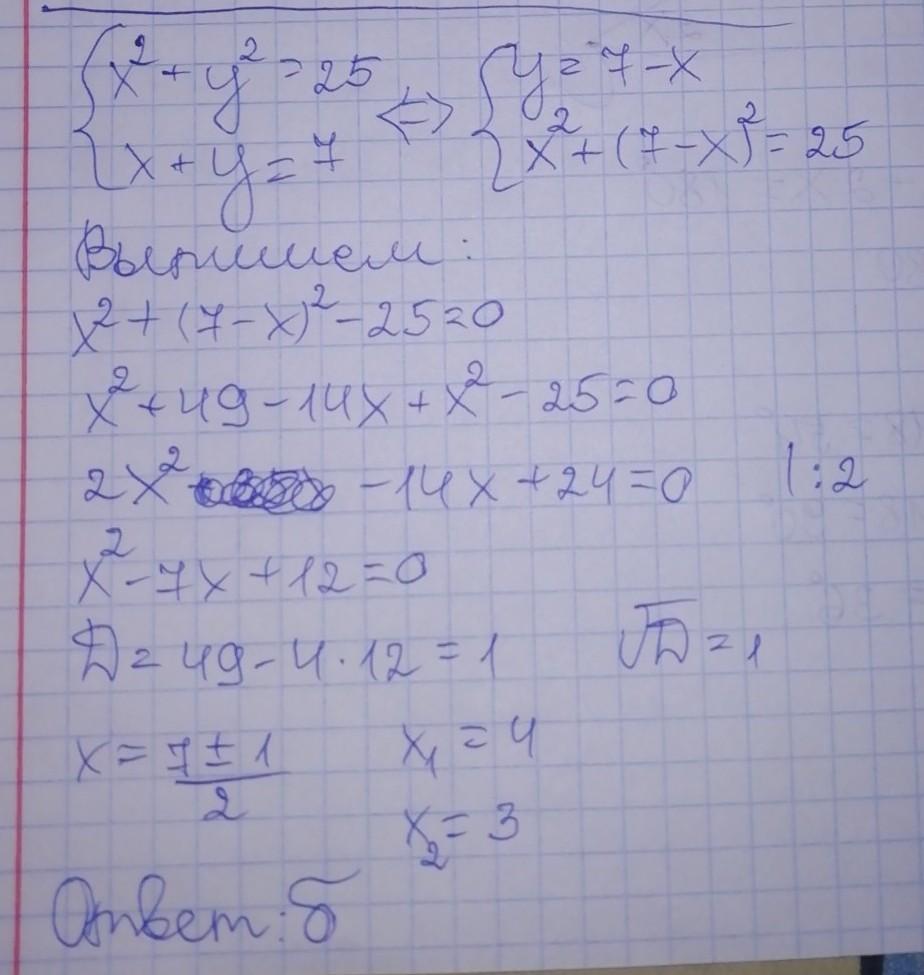 {x² + y² = 25 <=> {y = 7 - x
x + y = 7 x² + (7 - x)² = 25
Выпишем:
x² + (7 - x)² - 25 = 0
x² + 49 - 14x + x² - 25 = 0
2x² - 14x + 24 = 0 |:2
x² - 7x + 12 = 0
D = 49 - 4 · 12 = 1 √D = 1
x = (7 ± 1)/2 x₁ = 4
x₂ = 3
Ответ: б